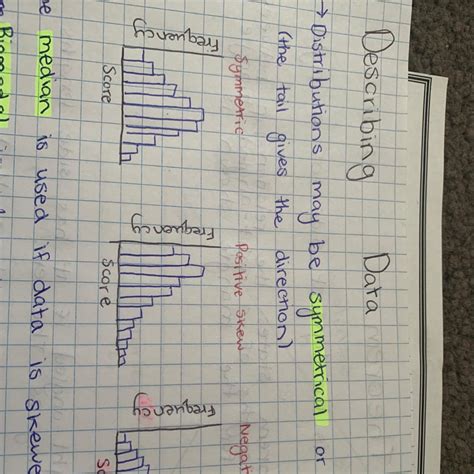 Describing Data
→ Distributions may be symmetrical or
(the tail gives the direction)
Symmetric
Positive skew
Negat
Frequency
Score
Frequency
Score
Frequency
Sc
median is used if data is skewe
Bimodal